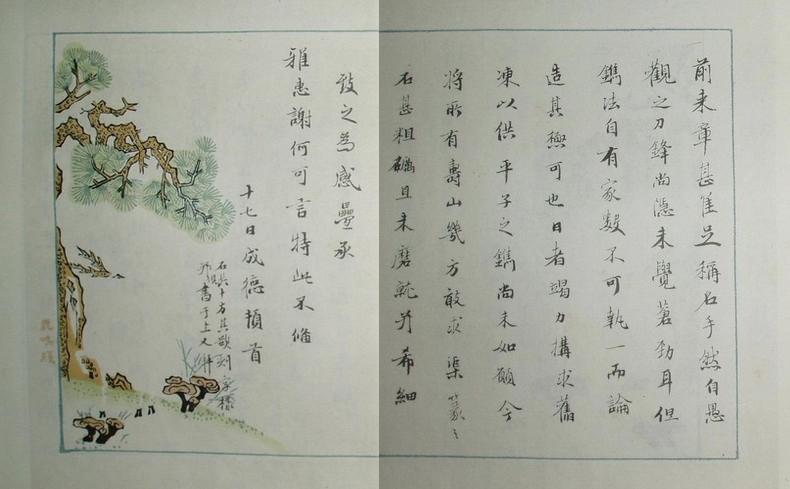 前来章甚佳足稱名手然自愚
觀之刀鋒尚隱未覺蒼勁耳但
鐫法自有家數不可執一而論
造其極可也日者竭力搆求舊
凍以供平子之鐫尚未如願今
將所有壽山幾方敢求渠篆之
石甚粗礪且未磨就并希細
致之為感疊承
雅惠謝何可言特此不備
十七日成德頓首
石共十方其欲刻字樣
俱書于上又拜